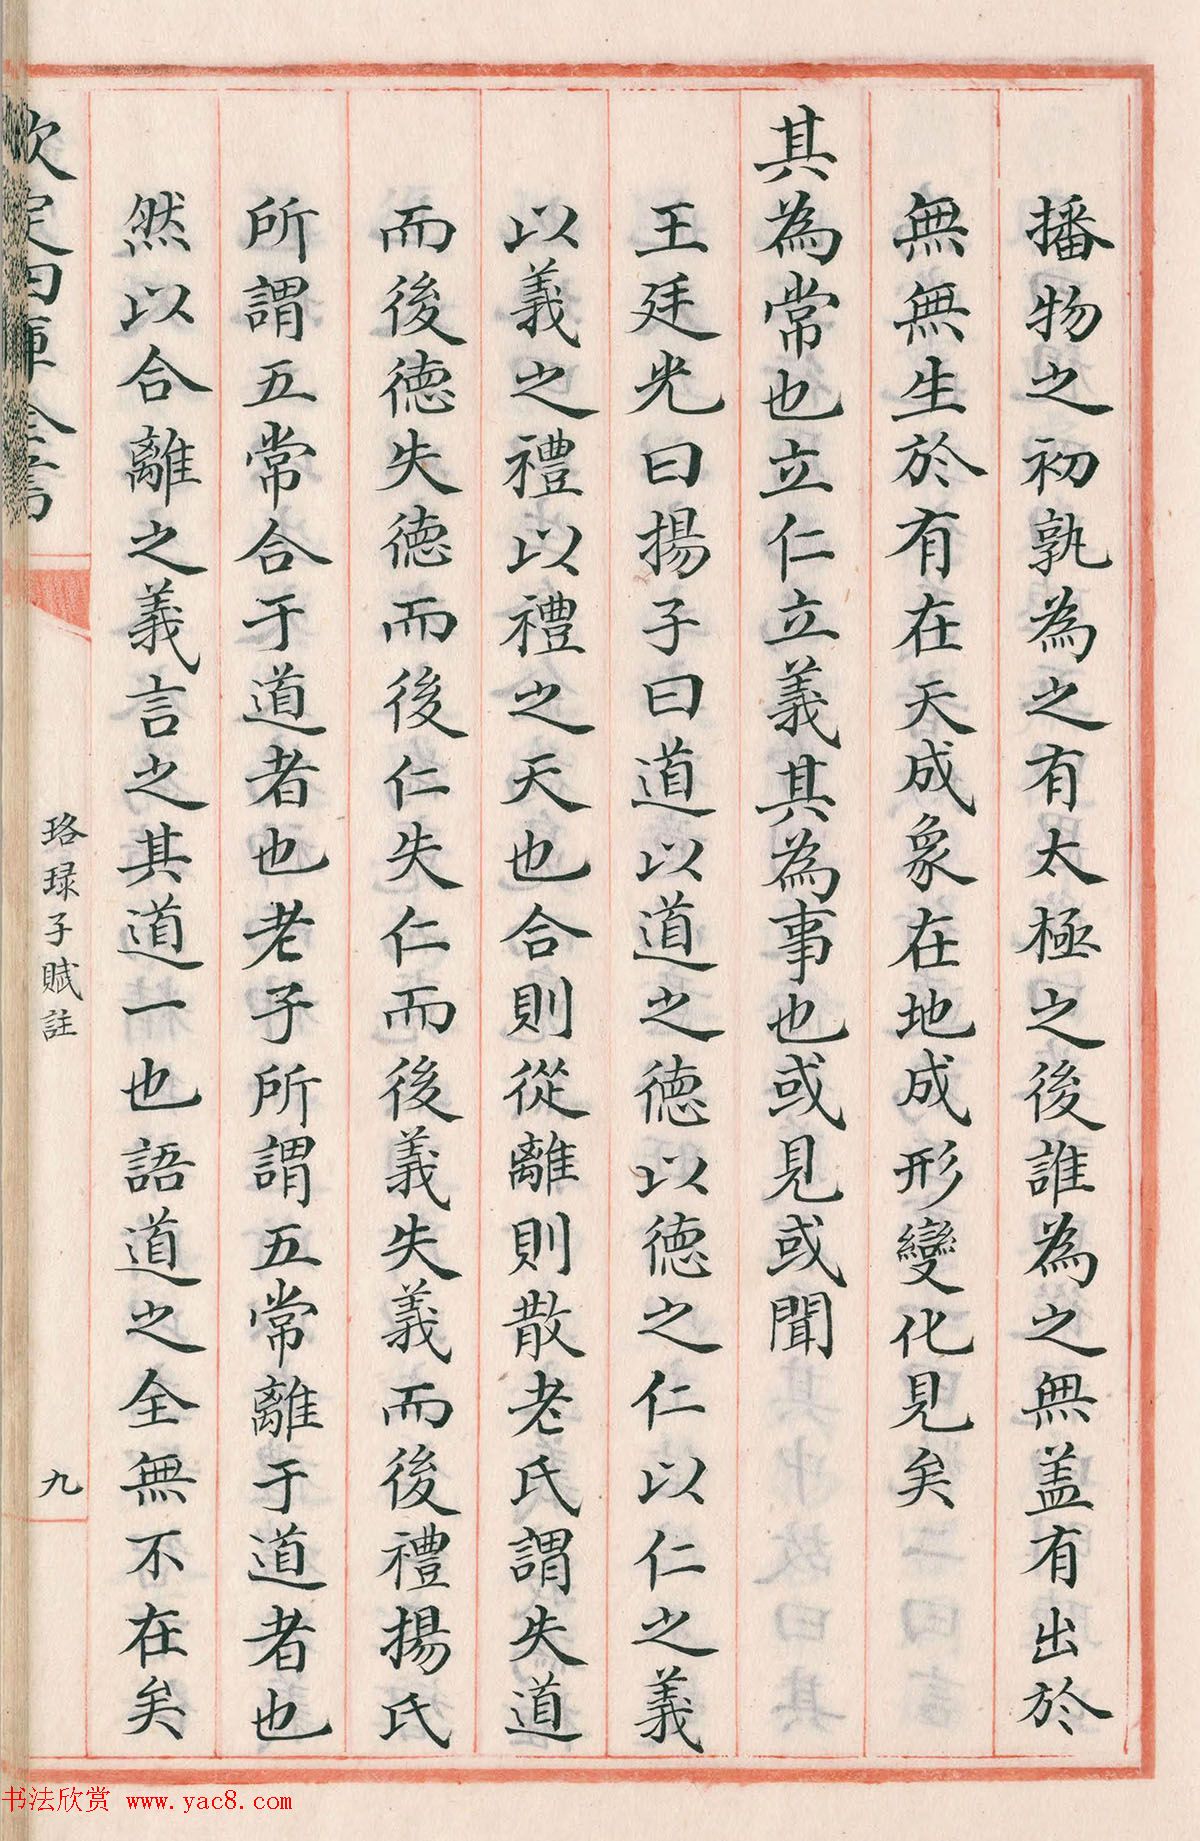 播物之初孰為之有太極之後誰為之無盖有出於
無無生於有在天成象在地成形變化見矣
其為常也立仁立義其為事也或見或聞
王廷光曰揚子曰道以道之德以德之仁以仁之義
以義之禮以禮之天也合則從離則散老氏謂失道
而後德失德而後仁失仁而後義失義而後禮揚氏
所謂五常合于道者也老子所謂五常離于道者也
然以合離之義言之其道一也語道之全無不在矣
欽定四庫全書
珞琭子賦註
九
书法欣赏 www.yac8.com